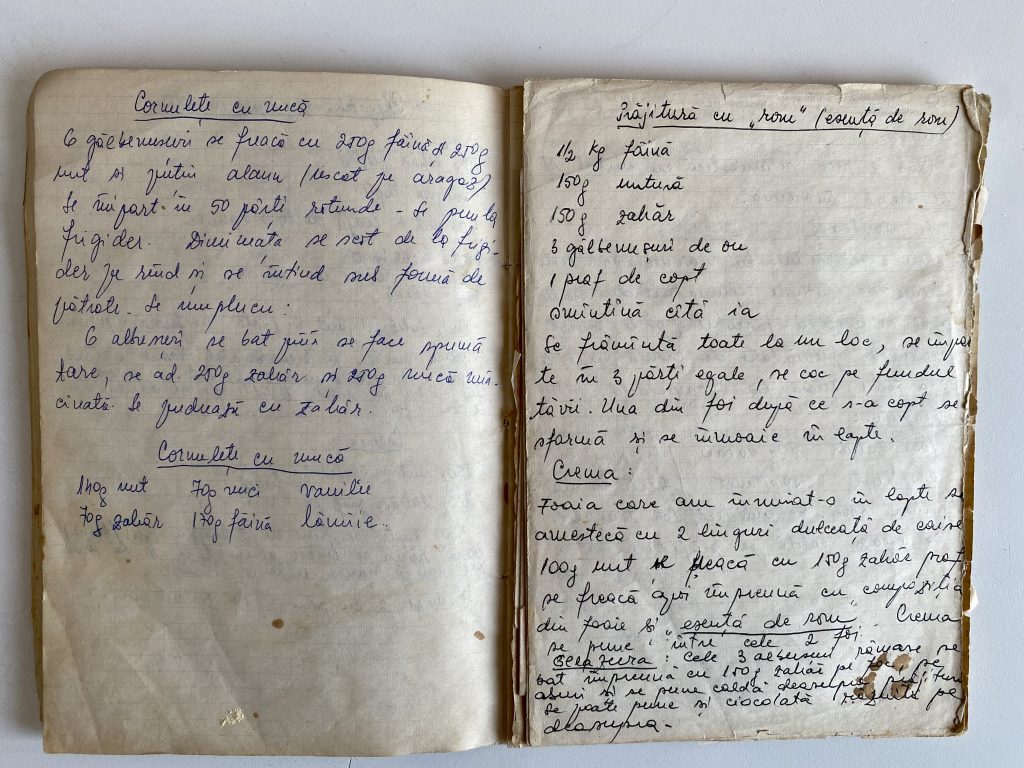 Cornulețe cu nucă
6 gălbenușuri se freacă cu 250g făină și 250g
unt și puțin alaun (uscat pe aragaz)
Se împart în 50 părți rotunde - Se pun la
frigider. Dimineața se scot de la frigi-
der pe rînd si se întind sub formă de
pătrate. Se umplu cu:
6 albusuri se bat pînă se face spumă
tare, se ad. 250g zahăr și 250g nucă mă-
cinată. Se pudrează cu zahăr.
Cornulețe cu nucă
140g unt 70g nuci vanilie
70g zahăr 170g făină lămîie.
Prăjitură cu „rom" (esență de rom)
1/2 kg făină
150g untură
150g zahăr
3 gălbenușuri de ou
1 praf de copt
smîntînă cîtă ia
Se frămîntă toate la un loc, se împar
te în 3 părți egale, se coc pe fundul
tăvii. Una din foi după ce s-a copt se
sfarmă și se înmoaie în lapte.
Crema:
Foaia care am înmuiat-o în lapte se
amestecă cu 2 linguri dulceață de caise
100g unt se freacă cu 150g zahăr praf
se freacă apoi împreună cu compoziția
din foaie și „esență de rom". Crema
se pune între cele 2 foi
Glazura: cele 3 albusuri rămase se
bat împreună cu 150g zahăr pe foc, pe
aburi si se pune caldă deasupra prăjiturii
Se poate pune și ciocolată pe
deasupra.